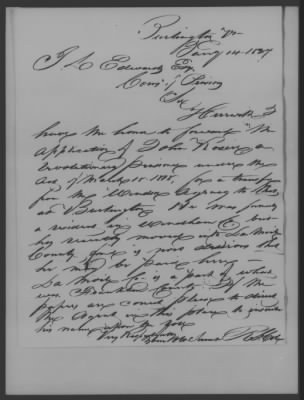 Burlington Vt
Jany 14. 1847
J L Edwards Esq
Com: of Pensions
Sir
Herewith I
have the honor to forward the
application of John
Revolutionary Pensioner under the
Act of March 18. 1818, for a transfer
from the Windsor Agency to that
at Burlington He was formerly
a resident in Windham Co but
has recently moved into La Moile
County & is now desirous that
he may be paid here —
La Moile Co is a part of what
was Franklin County. If the
papers are correct please to direct
the Agent in this place to
his name upon the
Very Respectfully